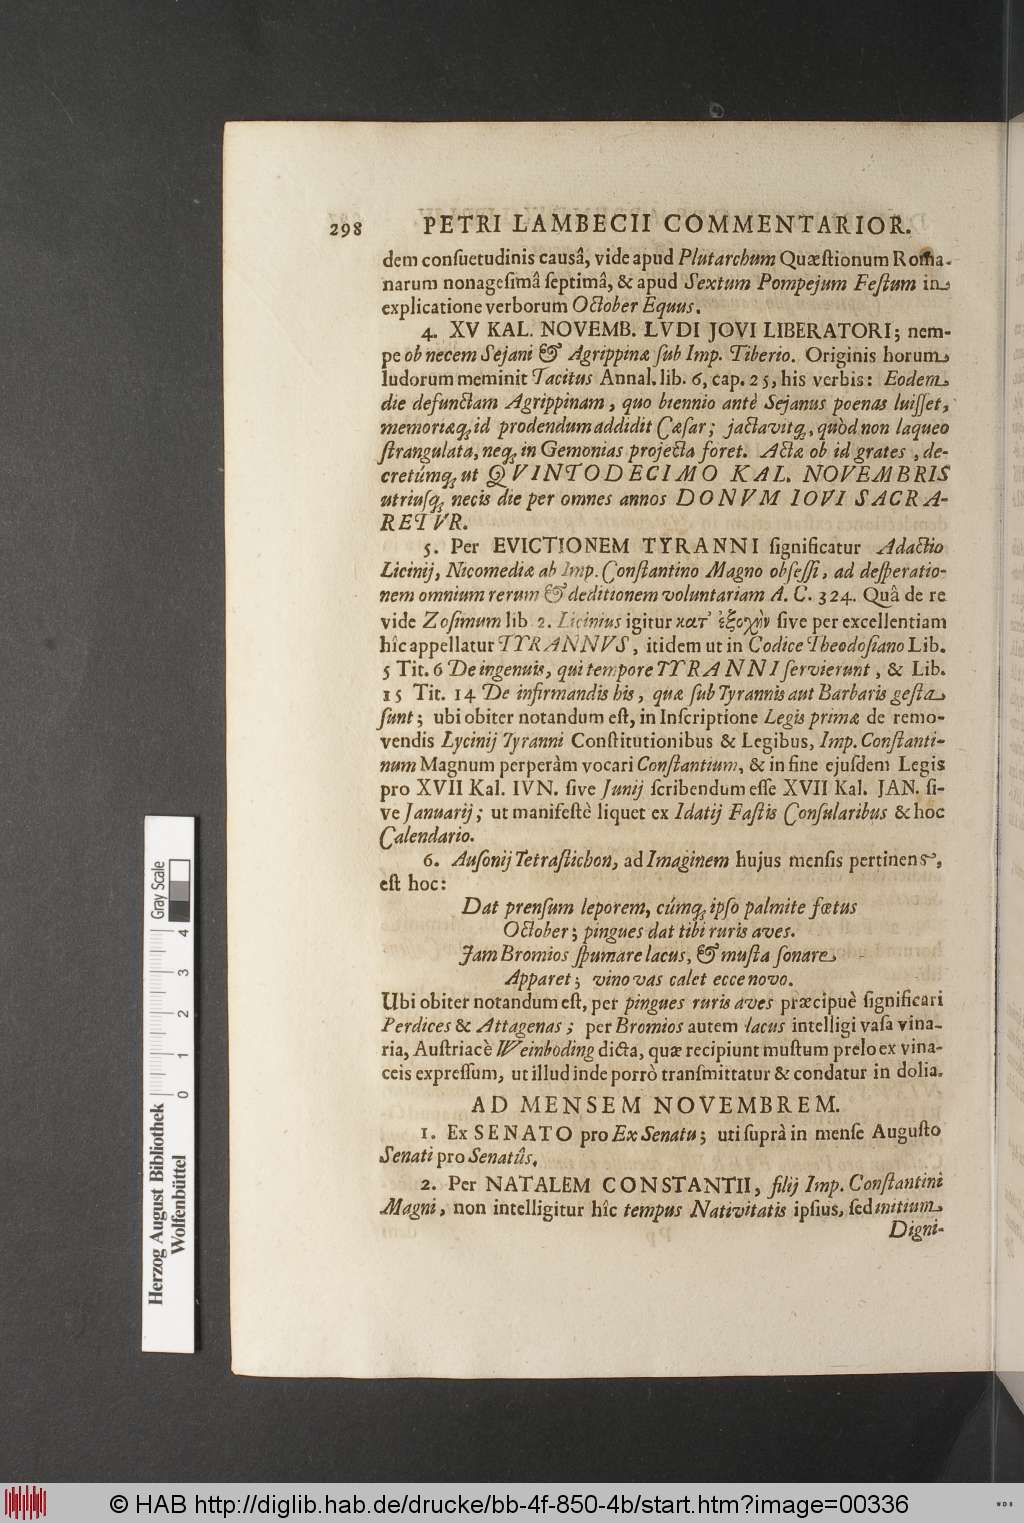 298 PETRI LAMBECII COMMENTARIOR.
dem conſuetudinis causâ, vide apud Plutarchum Quæſtionum Roma-
narum nonageſimâ ſeptimâ, & apud Sextum Pompejum Feſtum in
explicatione verborum October Equus.
4. XV KAL. NOVEMB. LVDI JOVI LIBERATORI; nem-
pe ob necem Sejani & Agrippinæ ſub Imp. Tiberio. Originis horum
ludorum meminit Tacitus Annal. lib. 6, cap. 25, his verbis: Eodem
die defunctam Agrippinam, quo biennio antè Sejanus poenas luiſſet,
memoriæq; id prodendum addidit Cæſar; jactavitq;, quòd non laqueo
ſtrangulata, neq; in Gemonias projecta foret. Actæ ob id grates, de-
cretúmq; ut QVINTODECIMO KAL. NOVEMBRIS
utriuſq; necis die per omnes annos DONVM IOVI SACRA-
RETVR.
5. Per EVICTIONEM TYRANNI ſignificatur Adactio
Licinij, Nicomediæ ab Imp. Conſtantino Magno obſeſſi, ad deſperatio-
nem omnium rerum & deditionem voluntariam A. C. 324. Quâ de re
vide Zoſimum lib. 2. Licinius igitur κατ' ἐξοχὴν ſive per excellentiam
hîc appellatur TYRANNVS, itidem ut in Codice Theodoſiano Lib.
5 Tit. 6 De ingenuis, qui tempore TYRANNI ſervierunt, & Lib.
15 Tit. 14 De infirmandis his, quæ ſub Tyrannis aut Barbaris geſta
ſunt; ubi obiter notandum eſt, in Inſcriptione Legis primæ de remo-
vendis Lycinij Tyranni Conſtitutionibus & Legibus, Imp. Conſtanti-
num Magnum perperàm vocari Conſtantium, & in fine ejuſdem Legis
pro XVII Kal. IVN. ſive Junij ſcribendum eſſe XVII Kal. JAN. ſi-
ve Januarij; ut manifeſtè liquet ex Idatij Faſtis Conſularibus & hoc
Calendario.
6. Auſonij Tetraſtichon, ad Imaginem hujus menſis pertinens,
eſt hoc:
Dat prenſum leporem, cúmq; ipſo palmite fœtus
October; pingues dat tibi ruris aves.
Jam Bromios ſpumare lacus, & muſta ſonare
Apparet; vino vas calet ecce novo.
Ubi obiter notandum eſt, per pingues ruris aves præcipuè ſignificari
Perdices & Attagenas; per Bromios autem lacus intelligi vaſa vina-
ria, Auſtriacè Weinboding dicta, quæ recipiunt muſtum prelo ex vina-
ceis expreſſum, ut illud inde porrò tranſmittatur & condatur in dolia.
AD MENSEM NOVEMBREM.
1. Ex SENATO pro Ex Senatu; uti ſuprà in menſe Auguſto
Senati pro Senatûs.
2. Per NATALEM CONSTANTII, filij Imp. Conſtantini
Magni, non intelligitur hîc tempus Nativitatis ipſius, ſed initium
Digni-
Herzog August Bibliothek
Wolfenbüttel
0 1 2 3 4
Gray Scale
© HAB http://diglib.hab.de/drucke/bb-4f-850-4b/start.htm?image=00336